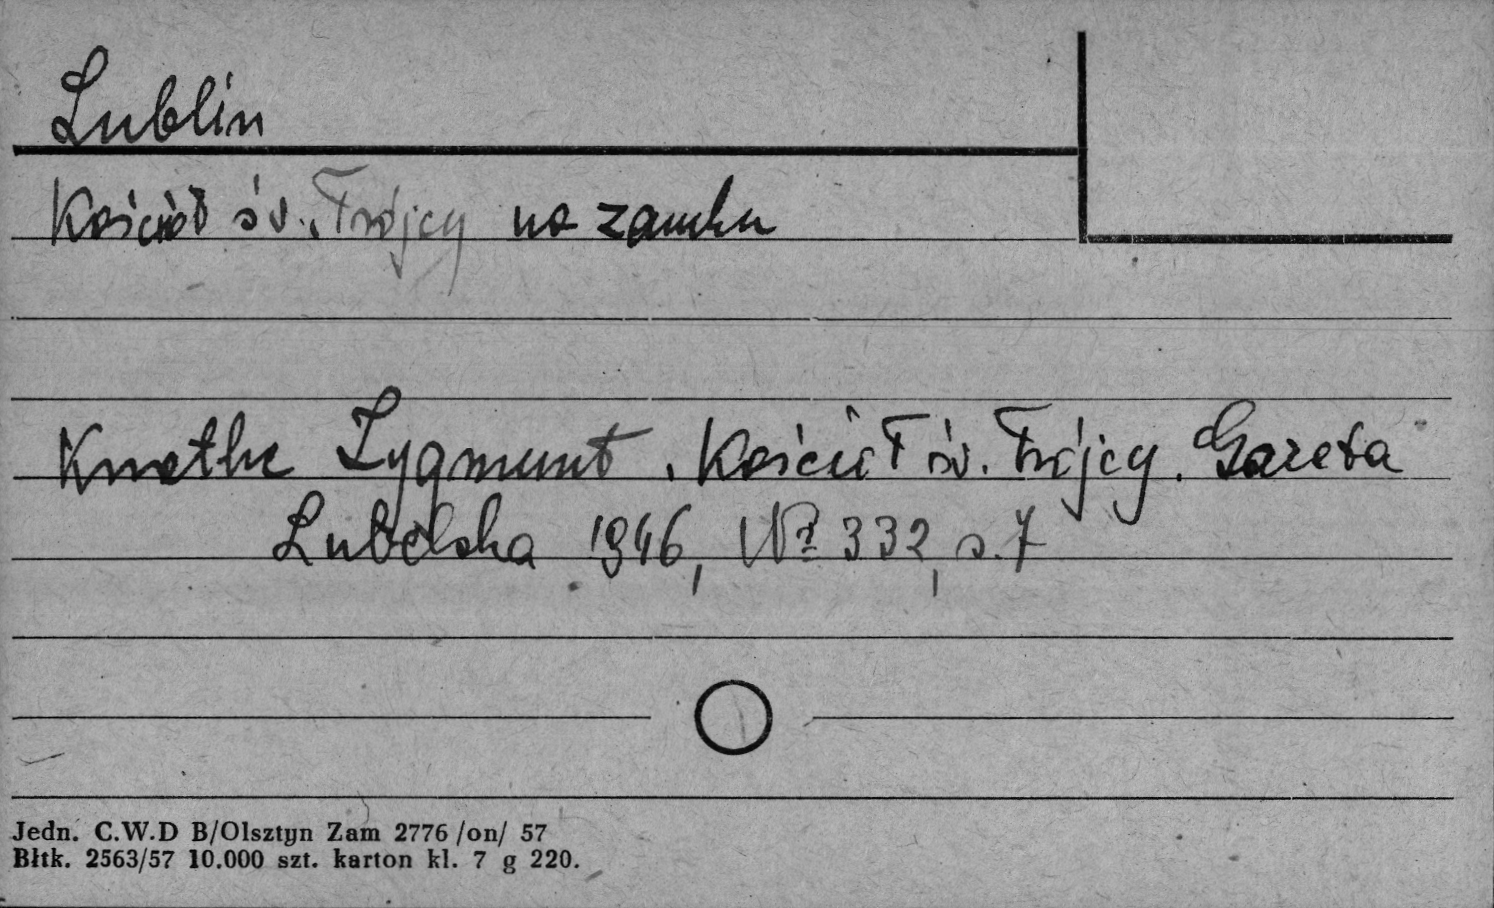 Lublin
Kościół św. Trójcy na zamku
Knothe Zygmunt. Kościół św. Trójcy. Gazeta
Lubelska 1946, Nr 332, s. 7
Jedn. C.W.D B/Olsztyn Zam 2776 /on/ 57
Błtk. 2563/57 10.000 szt. karton kl. 7 g 220.